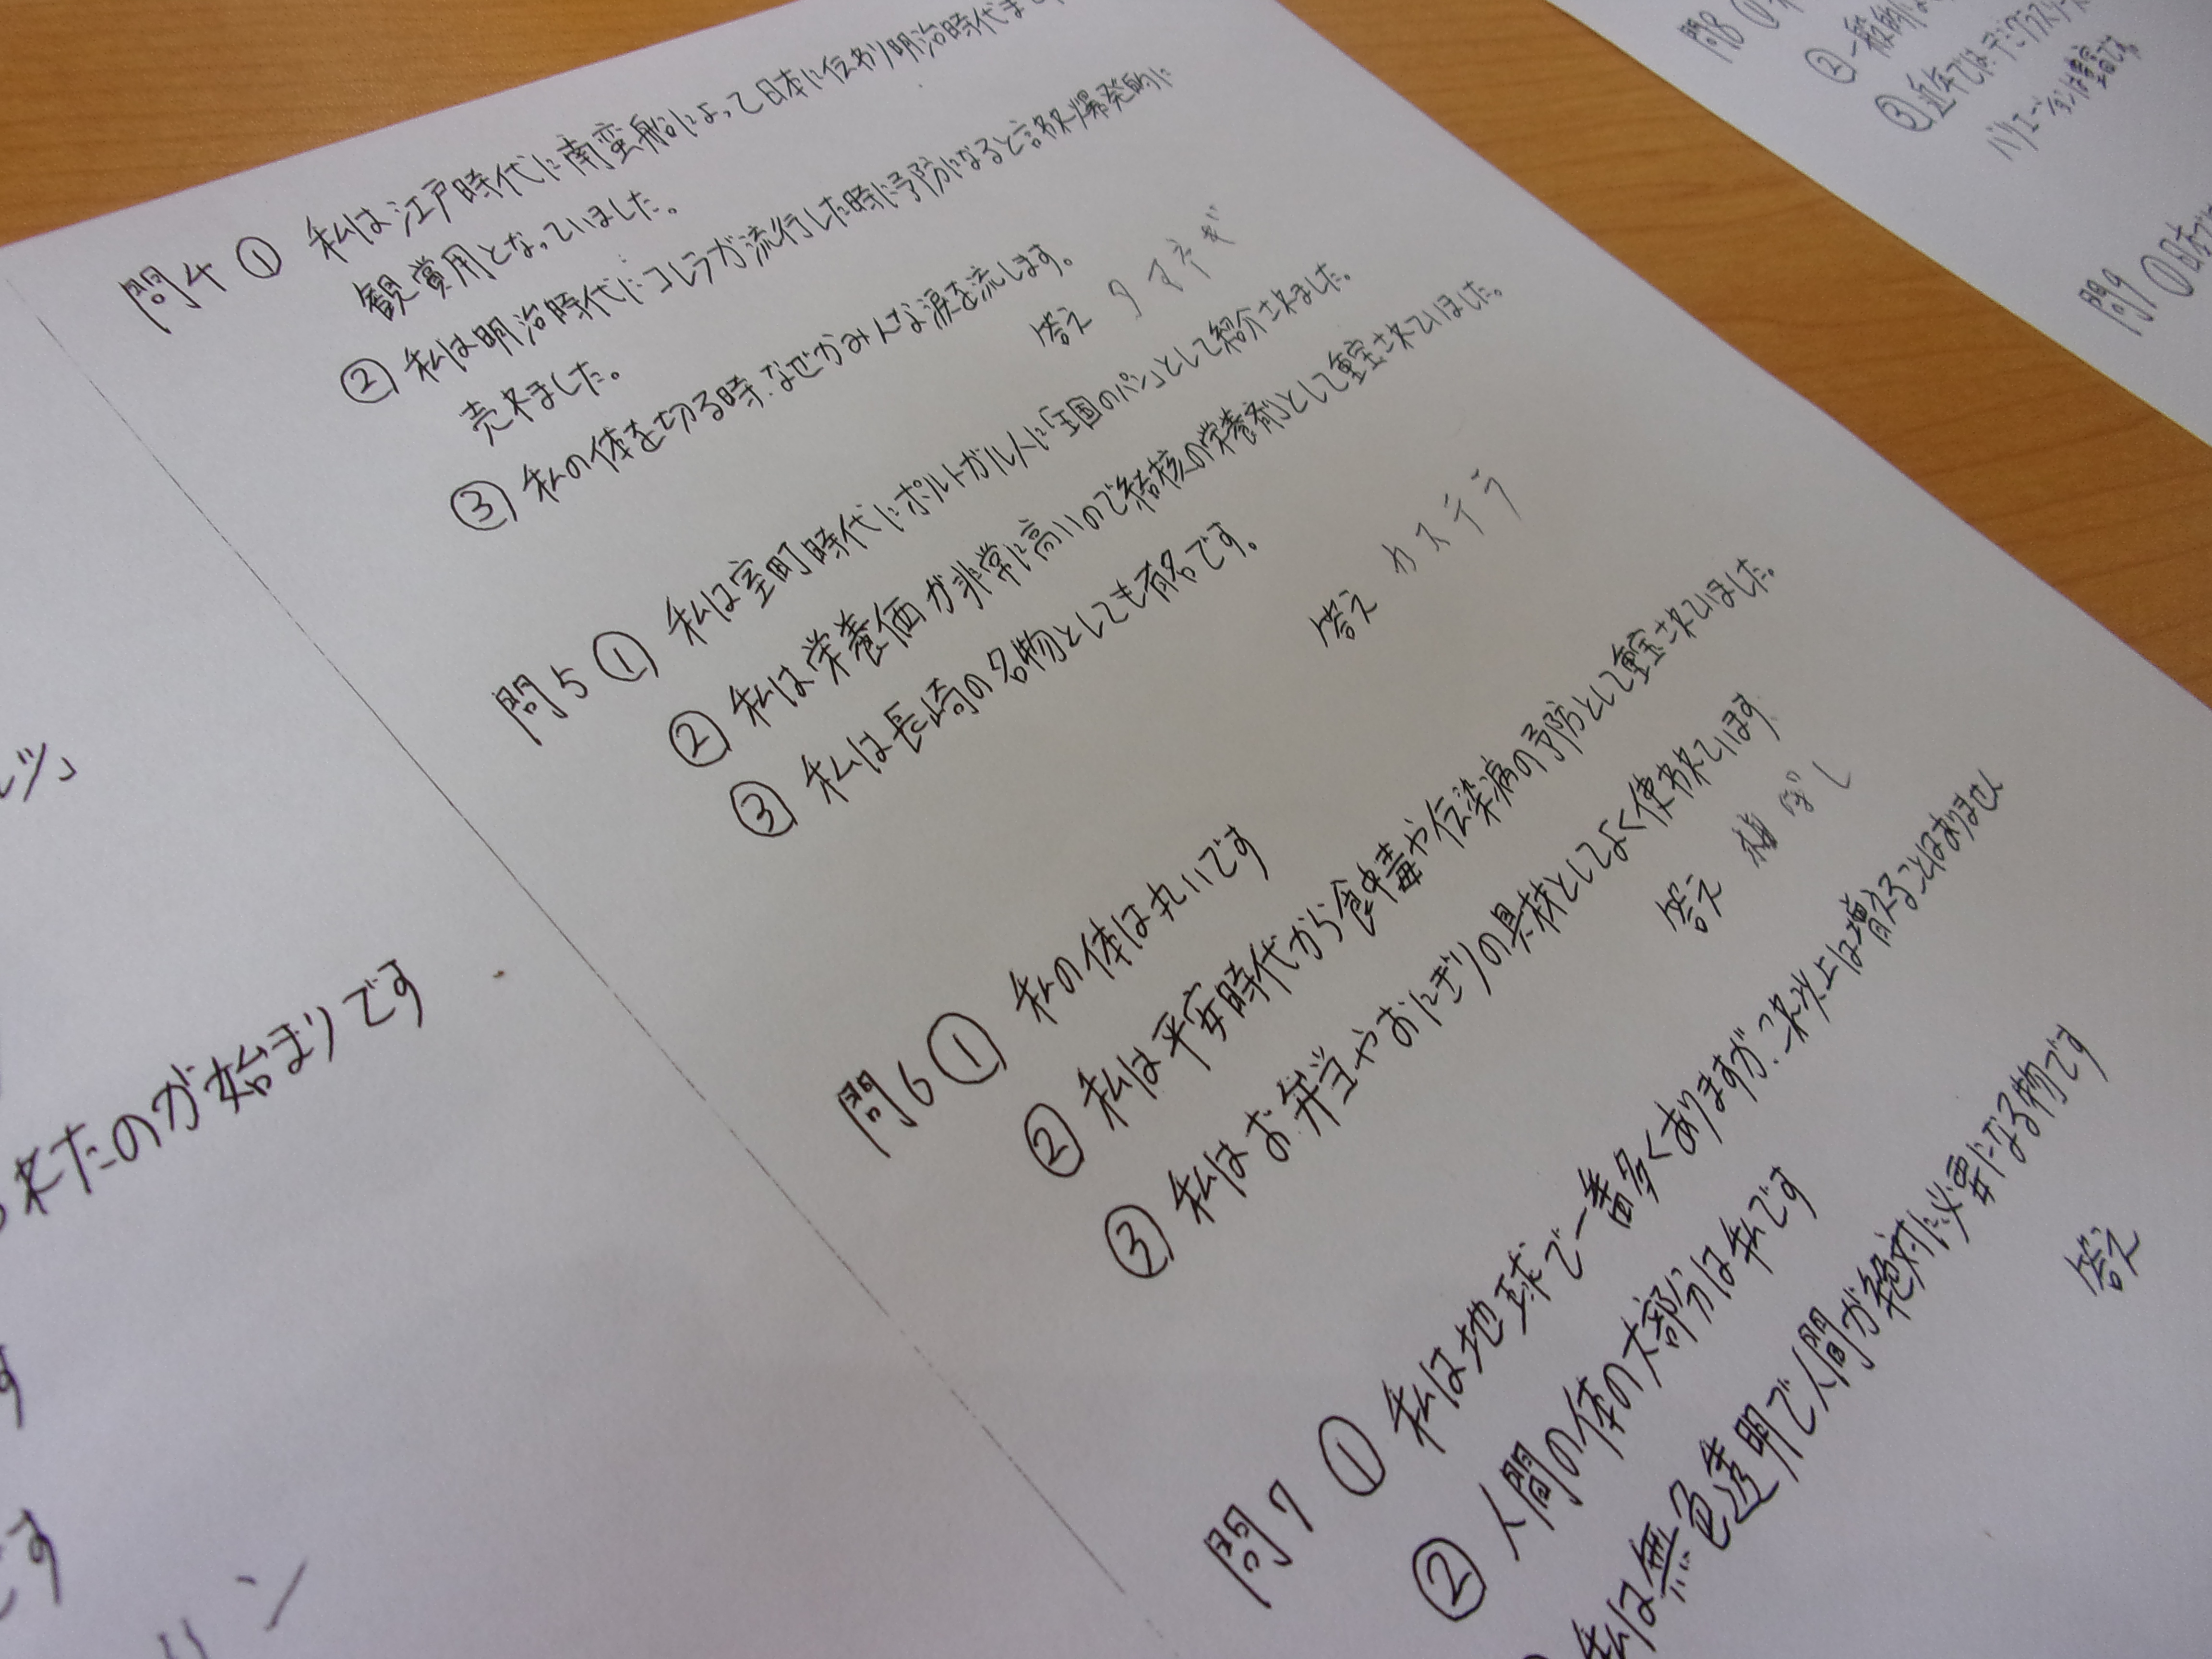 問4 ① 私は江戸時代に南蛮船によって日本に伝わり明治時代ま
観賞用となっていました。
② 私は明治時代にコレラが流行した時に予防になると言われ爆発的に
売れました。
③ 私の体を切る時、なぜかみんな涙を流します。
答え タマネギ
問5 ① 私は室町時代にポルトガル人に「王国のパン」として紹介されました。
② 私は栄養価が非常に高いので結核の栄養剤として重宝されていました。
③ 私は長崎の名物としても有名です。
答え カステラ
問6 ① 私の体は丸いです
② 私は平安時代から食中毒や伝染病の予防として重宝されていました。
③ 私はお弁当やおにぎりの具材としてよく使われています
答え 梅ぼし
問7 ① 私は地球で一番多くありますが、これ以上は増えることはありません
② 人間の体の大部分は私です
私は無色透明で人間が絶対に必要になる物です
答え
ツ」
来たのが始まりです
す
です
リン
問8 ①
② 一般的
③ 近年では
バリエーションは豊富です。
問9 ① 日本で